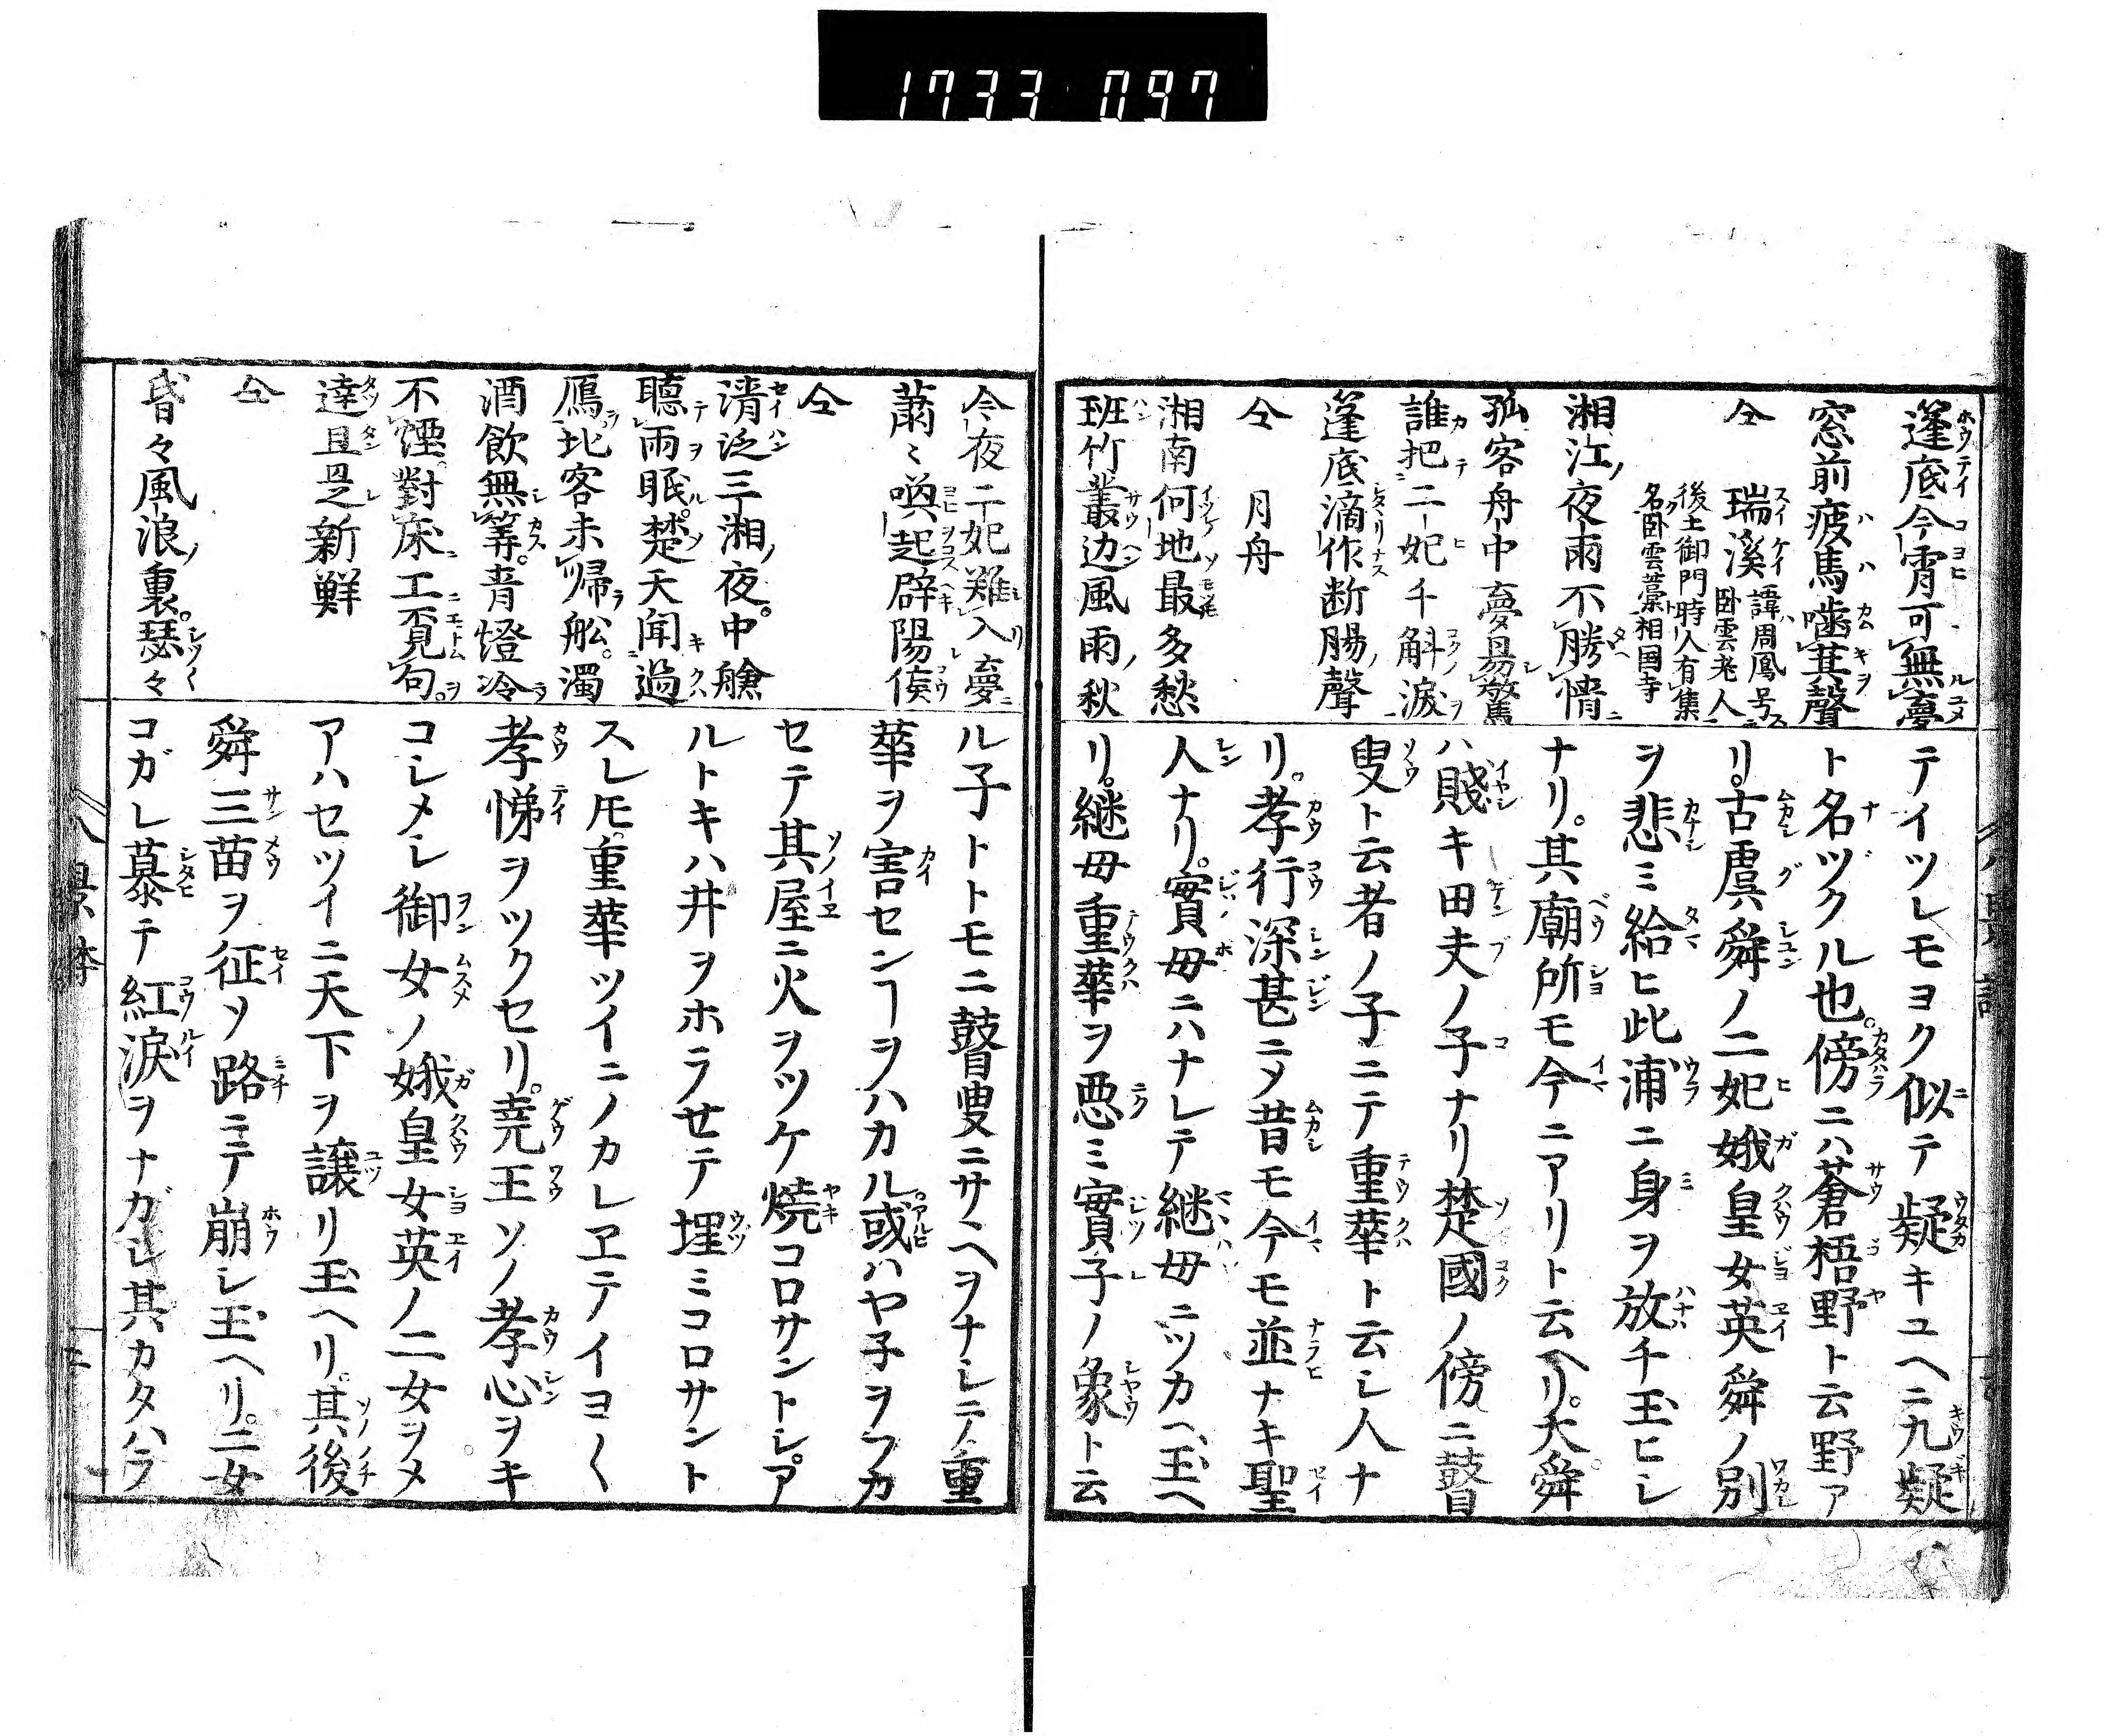 1733 097
篷底今宵可無夢
窓前疲馬噛萁聲
仝 瑞溪 諱周鳳号
臥雲老人
後土御門時人有集
名臥雲藁相国寺
湘江夜雨不勝情
孤客舟中夢易驚
誰把二妃千斛淚
篷底滴作断腸聲
仝 月舟
湘南何地最多愁
班竹叢边風雨秋
テイツレモヨク似テ疑キユヘニ九疑
ト名ヅクル也。傍ニハ蒼梧野ト云野ア
リ。古虞舜ノ二妃娥皇女英舜ノ別
ヲ悲ミ給ヒ此浦ニ身ヲ放チ玉ヒシ
ナリ。其廟所モ今ニアリト云ヘリ。大舜
ハ賤キ田夫ノ子ナリ楚國ノ傍ニ瞽
叟ト云者ノ子ニテ重華ト云シ人ナ
リ。孝行深甚ニメ昔モ今モ並ナキ聖
人ナリ。實母ニハナレテ継母ニツカヘ玉ヘ
リ。継母重華ヲ悪ミ實子ノ象ト云
今夜二妃難入夢
蕭〻喚起辟陽侯
仝
淸泛三湘夜中艙
聽雨眠楚天聞過
鴈北客未帰舩濁
酒飲無筭青燈冷
不煙對床工覓句
達旦思新鮮
仝
昏々風浪裏瑟々
ル子トトモニ瞽叟ニサヽヘヲナシテ重
華ヲ害センヿヲハカル或ハヤ子ヲフカ
セテ其屋ニ火ヲツケ焼コロサントシア
ルトキハ井ヲホラせテ埋ミコロサント
スレ𪜈重華ツイニノカレヱテイヨ〱
孝悌ヲツクセリ。堯王ソノ孝心ヲキ
コシメシ御女ノ娥皇女英ノ二女ヲメ
アハセツイニ天下ヲ譲リ玉ヘリ。其後
舜三苗ヲ征ソ路ニテ崩シ玉ヘリ。二女
コガレ慕テ紅淚ヲナガシ其カタハラ